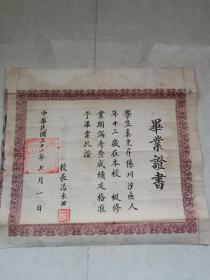 畢業證書
學生袁東升係川沙縣人
年十二歲在本校 級修
業期滿考查成績及格准
予畢業此證
校長
中華民國三十 年七月一日